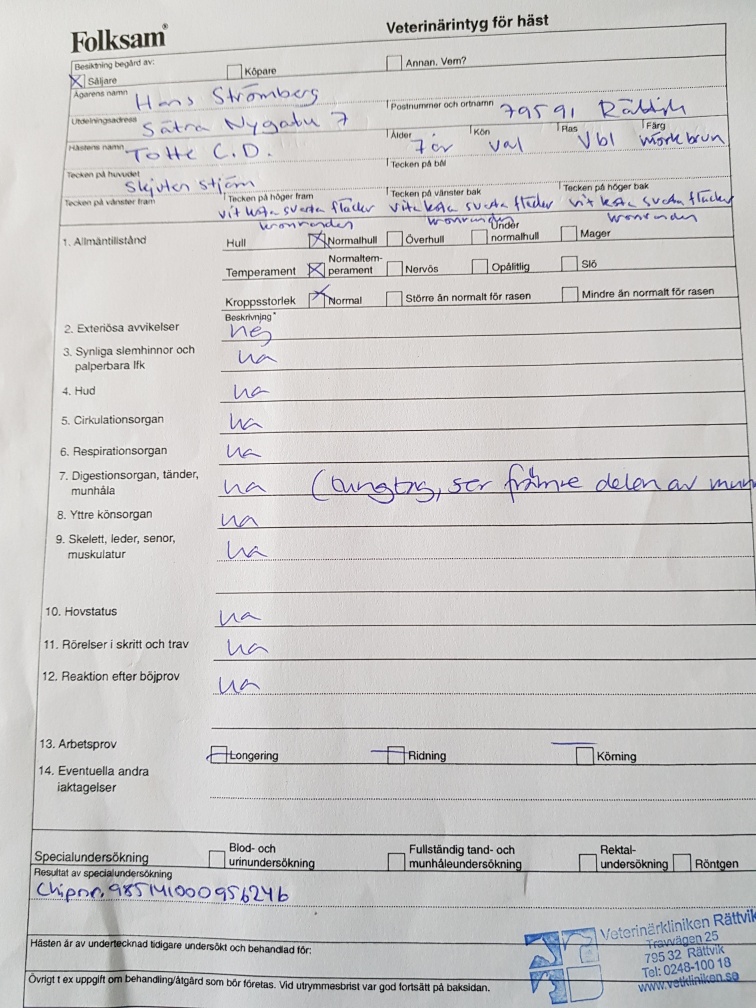 Folksam®
Veterinärintyg för häst
Besiktning begärd av:
Säljare
Köpare
Annan. Vem?
Ägarens namn Hans Strömberg
Utdelningsadress Sätra Nygatu 7
Postnummer och ortnamn 79591 Rättvik
Hästens namn Totte C.D.
Ålder 7 år
Kön val
Ras Vbl
Färg mörkbrun
Tecken på huvudet
Tecken på bål
Tecken på vänster fram
Tecken på höger fram vit kota svarta fläckar
kronranden
Tecken på vänster bak vit kota svarta fläckar
kronranden
Tecken på höger bak vit kota svarta fläckar
kronranden
1. Allmäntillstånd
Hull Normalhull Överhull Under normalhull Mager
Temperament Normaltem-
perament Nervös Opålitlig Slö
Kroppsstorlek Normal Större än normalt för rasen Mindre än normalt för rasen
Beskrivning*
2. Exteriösa avvikelser nej
3. Synliga slemhinnor och
palperbara lfk ua
4. Hud ua
5. Cirkulationsorgan ua
6. Respirationsorgan ua
7. Digestionsorgan, tänder,
munhåla ua (tungbg, ser främre delen av mun
8. Yttre könsorgan ua
9. Skelett, leder, senor,
muskulatur ua
10. Hovstatus ua
11. Rörelser i skritt och trav ua
12. Reaktion efter böjprov ua
13. Arbetsprov Longering Ridning Körning
14. Eventuella andra
iakttagelser
Specialundersökning
Blod- och
urinundersökning
Fullständig tand- och
munhåleundersökning
Rektal-
undersökning
Röntgen
Resultat av specialundersökning
Chipnr. 985141000956246
Hästen är av undertecknad tidigare undersökt och behandlad för:
Övrigt t ex uppgift om behandling/åtgärd som bör företas. Vid utrymmesbrist var god fortsätt på baksidan.
Veterinärkliniken Rättvik
Travvägen 25
795 32 Rättvik
Tel: 0248-100 18
www.vetkliniken.se